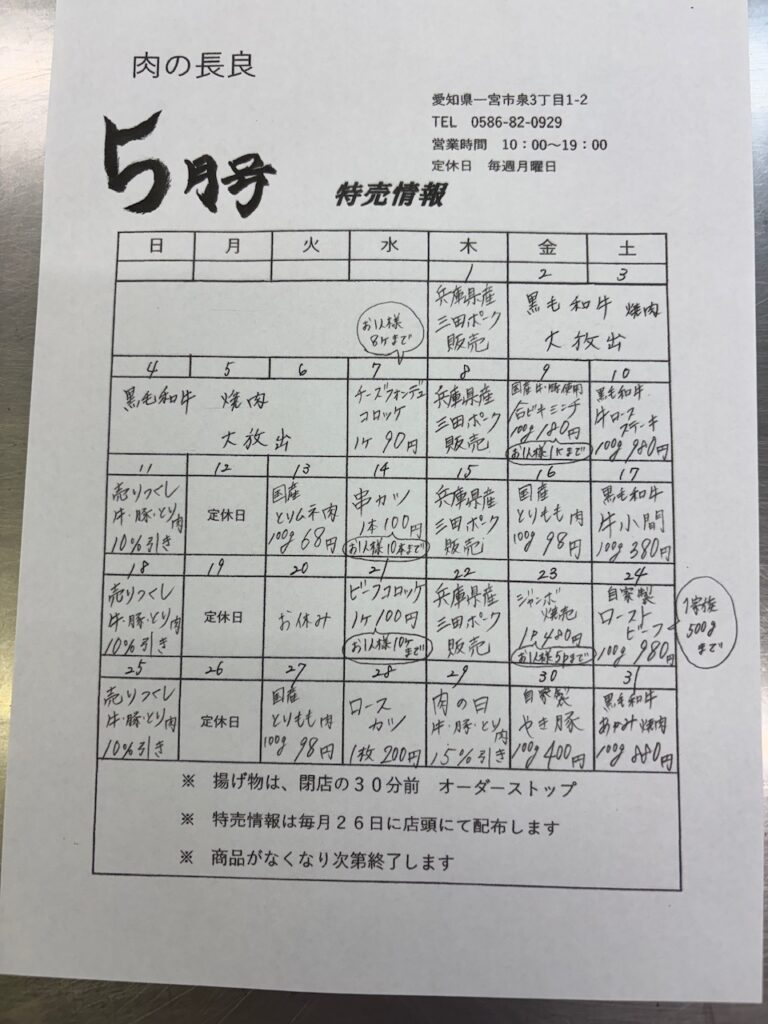 肉の長良
愛知県一宮市泉3丁目1-2
TEL 0586-82-0929
営業時間 10：00～19：00
定休日 毎週月曜日
5月号
特売情報
日 月 火 水 木 金 土
1 2 3
お1人様
8ケまで
兵庫県産
三田ポーク
販売
黒毛和牛 焼肉
大放出
4 5 6 7 8 9 10
黒毛和牛 焼肉
大放出
チーズフォンデュ
コロッケ
1ケ 90円
兵庫県産
三田ポーク
販売
国産牛・豚使用
合ビキミンチ
100g 180円
お1人様1Kまで
黒毛和牛
牛ロース
ステーキ
100g 980円
11 12 13 14 15 16 17
売りつくし
牛・豚・とり肉
10%引き
定休日
国産
とりムネ肉
100g 68円
串カツ
1本100円
お1人様10本まで
兵庫県産
三田ポーク
販売
国産
とりもも肉
100g 98円
黒毛和牛
牛小間
100g 380円
18 19 20 21 22 23 24
売りつくし
牛・豚・とり肉
10%引き
定休日
お休み
ビーフコロッケ
1ケ100円
お1人様10ケまで
兵庫県産
三田ポーク
販売
ジャンボ
焼売
1P480円
お1人様5Pまで
自家製
ロースト
ビーフ
100g 980円
1家族
500g
まで
25 26 27 28 29 30 31
売りつくし
牛・豚・とり肉
10%引き
定休日
国産
とりもも肉
100g 98円
ロース
カツ
1枚200円
肉の日
牛・豚・とり肉
15%引き
自家製
やき豚
100g 400円
黒毛和牛
あみ焼肉
100g 880円
※ 揚げ物は、閉店の３０分前 オーダーストップ
※ 特売情報は毎月２６日に店頭にて配布します
※ 商品がなくなり次第終了します